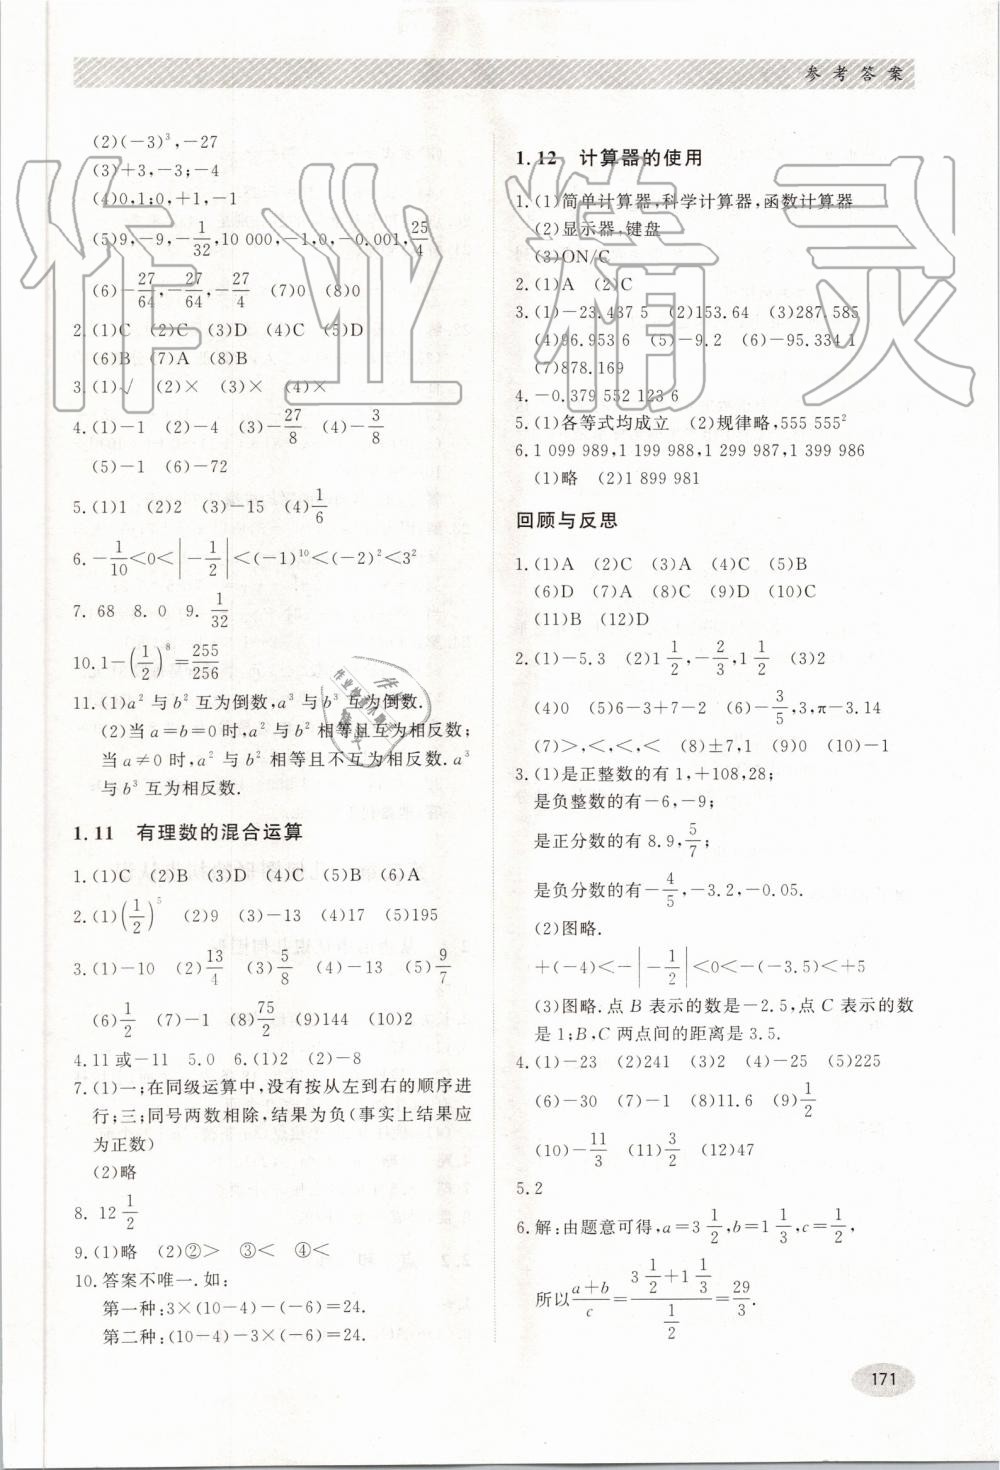 参考答案
(2)(-3)³,-27
(3)+3,-3;-4
(4)0,1;0,+1,-1
(5)9,-9,-1/32,10 000,-1,0,-0.001,25/4
(6)-27/64,-27/64,-27/4 (7)0 (8)0
2.(1)C (2)C (3)D (4)C (5)D
(6)B (7)A (8)B
3.(1)√ (2)× (3)× (4)×
4.(1)-1 (2)-4 (3)-27/8 (4)-3/8
(5)-1 (6)-72
5.(1)1 (2)2 (3)-15 (4)1/6
6.-1/10<0<|-1/2|<(-1)¹⁰<(-2)²<3²
7. 68 8. 0 9. 1/32
10.1-(1/2)⁸=255/256
11.(1)a²与b²互为倒数,a³与b³互为倒数.
(2)当a=b=0时,a²与b²相等且互为相反数;
当a≠0时,a²与b²相等且不互为相反数.a³
与b³互为相反数.
1.11 有理数的混合运算
1.(1)C (2)B (3)D (4)C (5)B (6)A
2.(1)(1/2)⁵ (2)9 (3)-13 (4)17 (5)195
3.(1)-10 (2)13/4 (3)5/8 (4)-13 (5)9/7
(6)1/2 (7)-1 (8)75/2 (9)144 (10)2
4.11或-11 5.0 6.(1)2 (2)-8
7.(1)一;在同级运算中,没有按从左到右的顺序进
行;三;同号两数相除,结果为负(事实上结果应
为正数)
(2)略
8. 12 1/2
9.(1)略 (2)②> ③< ④<
10.答案不唯一.如:
第一种:3×(10-4)-(-6)=24.
第二种:(10-4)-3×(-6)=24.
1.12 计算器的使用
1.(1)简单计算器,科学计算器,函数计算器
(2)显示器,键盘
(3)ON/C
2.(1)A (2)C
3.(1)-23.437 5 (2)153.64 (3)287.585
(4)96.953 6 (5)-9.2 (6)-95.334 1
(7)878.169
4.-0.379 552 123 6
5.(1)各等式均成立 (2)规律略,555 555²
6.1 099 989,1 199 988,1 299 987,1 399 986
(1)略 (2)1 899 981
回顾与反思
1.(1)A (2)C (3)A (4)C (5)B
(6)D (7)A (8)C (9)D (10)C
(11)B (12)D
2.(1)-5.3 (2)1 1/2,-2/3,1 1/2 (3)2
(4)0 (5)6-3+7-2 (6)-3/5,3,π-3.14
(7)>,<,<,< (8)±7,1 (9)0 (10)-1
3.(1)是正整数的有1,+108,28;
是负整数的有-6,-9;
是正分数的有8.9,5/7;
是负分数的有-4/5,-3.2,-0.05.
(2)图略.
+(-4)<-|-1/2|<0<-(-3.5)<+5
(3)图略.点B表示的数是-2.5,点C表示的数
是1;B,C两点间的距离是3.5.
4.(1)-23 (2)241 (3)2 (4)-25 (5)225
(6)-30 (7)-1 (8)11.6 (9)1/2
(10)-11/3 (11)3/2 (12)47
5.2
6.解:由题意可得,a=3 1/2,b=1 1/3,c=1/2,
所以(a+b)/c=(3 1/2+1 1/3)/(1/2)=29/3.
171
作业精灵